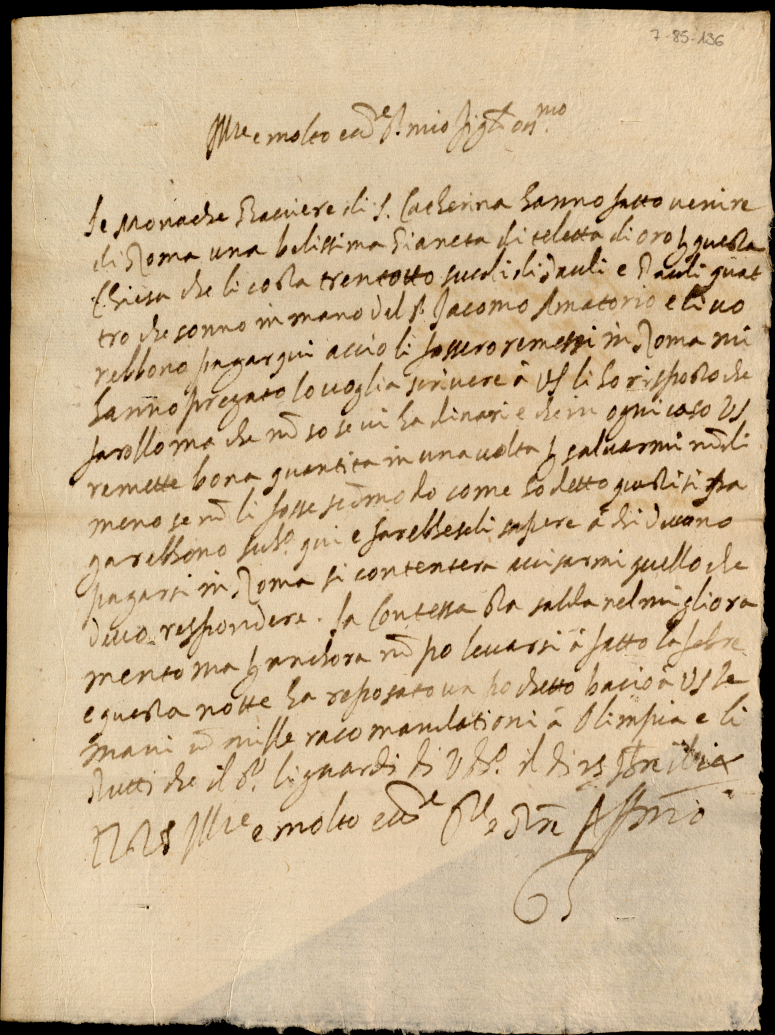 7-85-136
Ill.re e molto ecc.e S.r mio oss.mo
Le Monache di S. Catherina hanno fatto venire
di Roma una belissima Pianeta di teletta di oro p questa
Chiesa che li costa trentotto scudi di Pauli e Pauli quat
tro che sonno in mano del S.r Jacomo Amatorio e li vo
rebbono pagar qui accio li fossero remessi in Roma mi
hanno pregato lo voglia scrivere à VS li ho risposto che
farollo ma che nō so se vi ha dinari e che in ogni caso VS
remette bona quantita in una volta p salvarmi
meno se nō li fosse scōmodo come ho detto questi si pa
garebbono sub.o qui e farebbeseli sapere à chi devono
pagarsi in Roma si contentera avisarmi quello che
devo respondere. La Contessa sta salda nel migliora
mento ma p anchora nō po levarsi à fatto la febre
e questa notte ha reposato un pochetto bacio à VS le
mani cō mille racomandationi à Olimpia e li
Putti che il S.r li guardi di il di 25
Di VS Ill.re e molto ecc.e